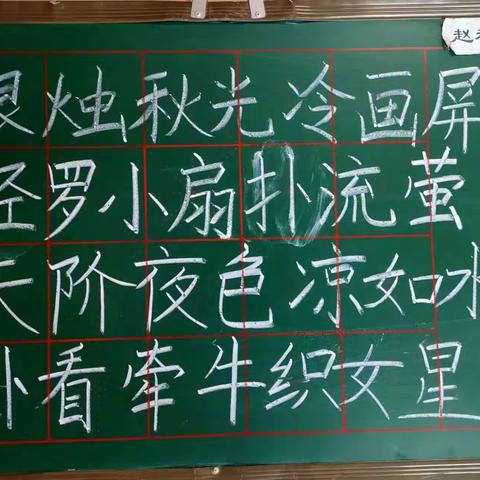 赵
烛秋光冷画屏
罗小扇扑流萤
天阶夜色凉如水
看牵牛织女星